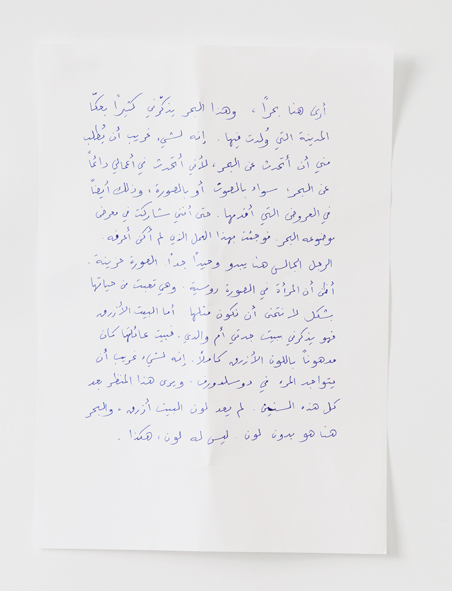 أرى هنا بحراً، وهذا البحر يذكّرني كثيراً بعكّا
المدينة التي وُلدت فيها. إنه لشيء غريب أن يُطلب
مني أن أتحدث عن البحر، لأني أتحدث في أعمالي دائماً
عن البحر، سواء بالصوت أو بالصورة، وذلك أيضاً
في العروض التي أقدمها. حتى أنني شاركت في معرض
موضوعه البحر. فوجئت بهذا العمل الذي لم أكن أعرفه.
الرجل الجالس هنا يبدو وحيداً جداً. الصورة حزينة.
أظن أن المرأة في الصورة روسية. وهي تعبت من حياتها
بشكل لا نتمنى أن نكون مثلها. أما البيت الأزرق
فهو يذكرني ببيت جدتي أم والدي. فبيت عائلتها كان
مدهوناً باللون الأزرق كاملاً. إنه لشيء غريب أن
يتواجد المرء في دوسلدورف. ويرى هذا المنظر بعد
كل هذه السنين. لم يعد لون البيت أزرق، والبحر
هنا هو بدون لون. ليس له لون، هكذا.